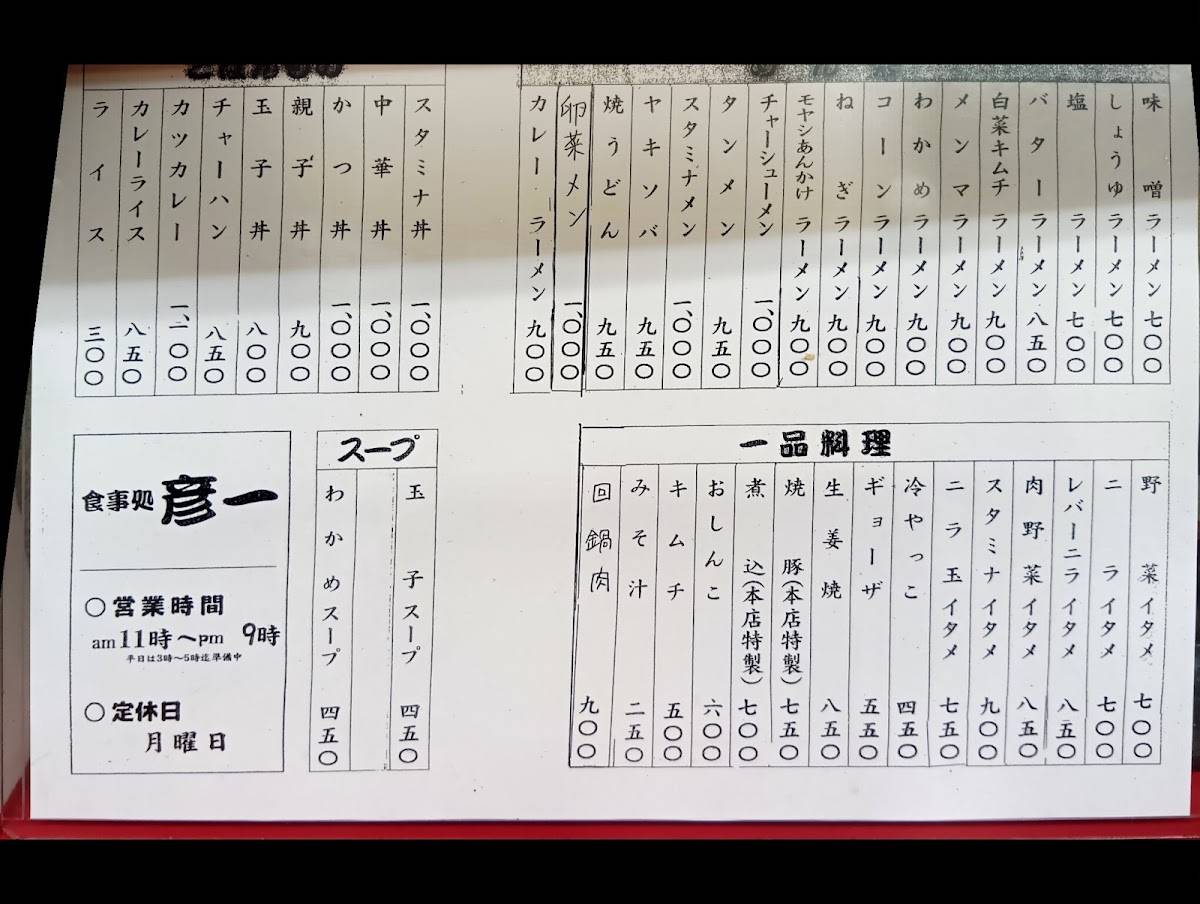 味噌ラーメン 七〇〇
しょうゆラーメン 七〇〇
塩ラーメン 七〇〇
バターラーメン 八五〇
白菜キムチラーメン 九〇〇
メンマラーメン 九〇〇
わかめラーメン 九〇〇
コーンラーメン 九〇〇
ねぎラーメン 九〇〇
モヤシあんかけラーメン 九〇〇
チャーシューメン 一、〇〇〇
タンメン 九五〇
スタミナメン 一、〇〇〇
ヤキソバ 九五〇
焼うどん 九五〇
卵菜メン 一、〇〇〇
カレーラーメン 九〇〇
ごはんもの
スタミナ丼 一、〇〇〇
中華丼 一、〇〇〇
かつ丼 一、〇〇〇
親子丼 九〇〇
玉子丼 八〇〇
チャーハン 八五〇
カツカレー 一、一〇〇
カレーライス 八五〇
ライス 三〇〇
一品料理
野菜イタメ 七〇〇
ニライタメ 七〇〇
レバーニライタメ 八五〇
肉野菜イタメ 八五〇
スタミナイタメ 九〇〇
ニラ玉イタメ 七五〇
冷やっこ 四五〇
ギョーザ 五五〇
生姜焼 八五〇
焼豚(本店特製) 七五〇
煮込(本店特製) 七〇〇
おしんこ 六〇〇
キムチ 五〇〇
みそ汁 二五〇
回鍋肉 九〇〇
スープ
玉子スープ 四五〇
わかめスープ 四五〇
食事処 彦一
○営業時間
am11時〜pm 9時
平日は3時〜5時迄準備中
○定休日
月曜日